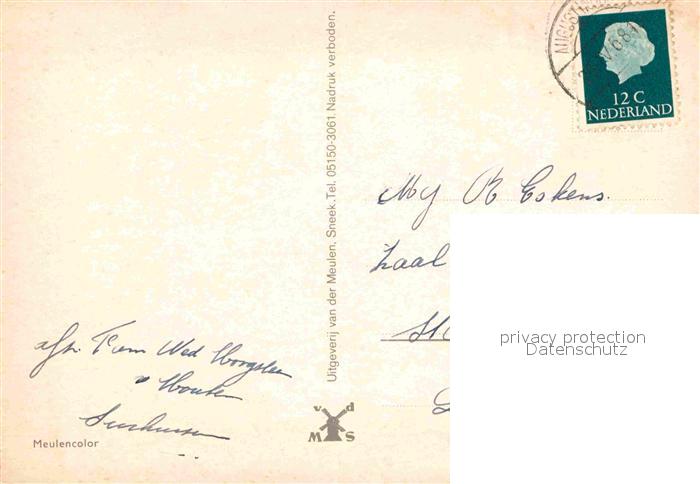 AUGUSTI
12 C
NEDERLAND
Uitgeverij van der Meulen, Sneek. Tel. 05150-3061. Nadruk verboden.
Mej R Eskens.
Zaal
privacy protection
Datenschutz
afz. Fam Wed
v d
M S
Meulencolor